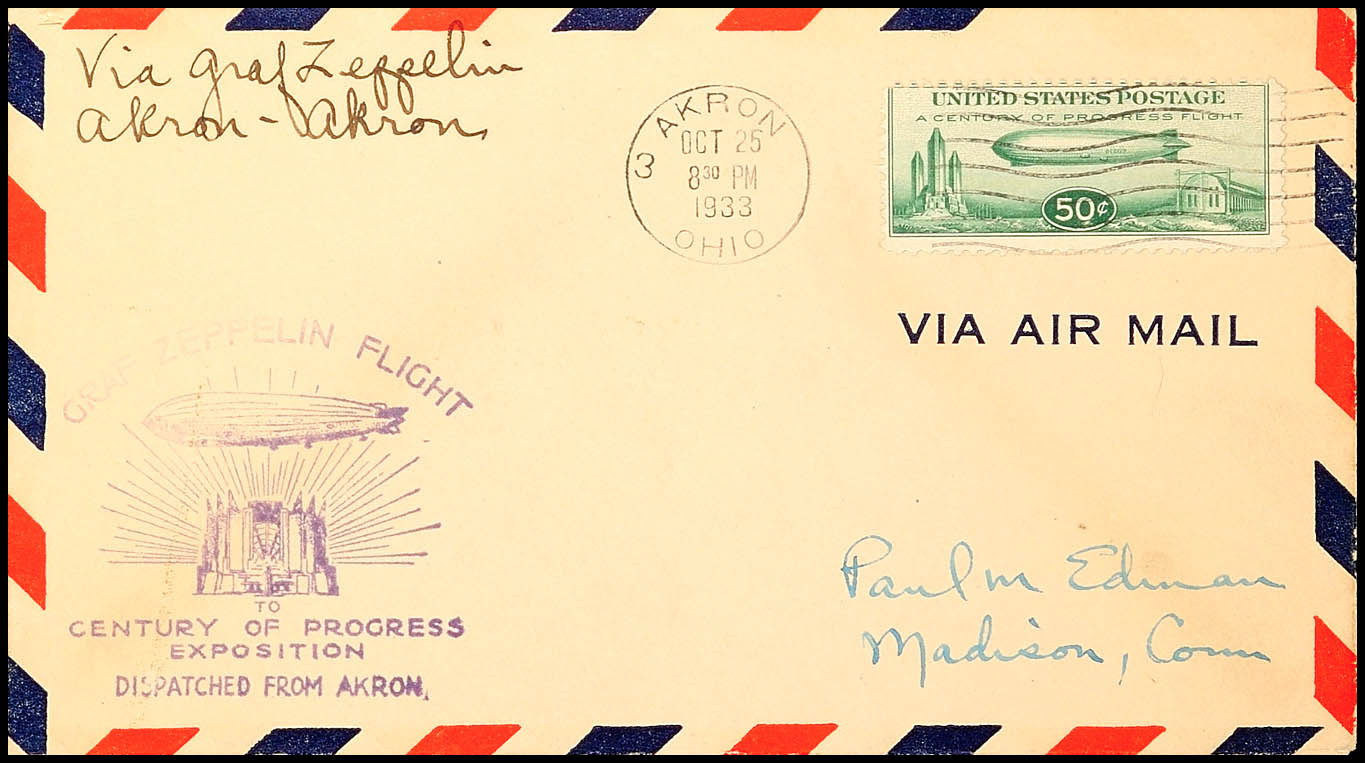 Via Graf Zeppelin
Akron - Akron
3 AKRON
OCT 25
8 30 PM
1933
OHIO
UNITED STATES POSTAGE
A CENTURY OF PROGRESS FLIGHT
50¢
VIA AIR MAIL
GRAF ZEPPELIN FLIGHT
TO
CENTURY OF PROGRESS
EXPOSITION
DISPATCHED FROM AKRON.
Paul M Edman
Madison, Conn